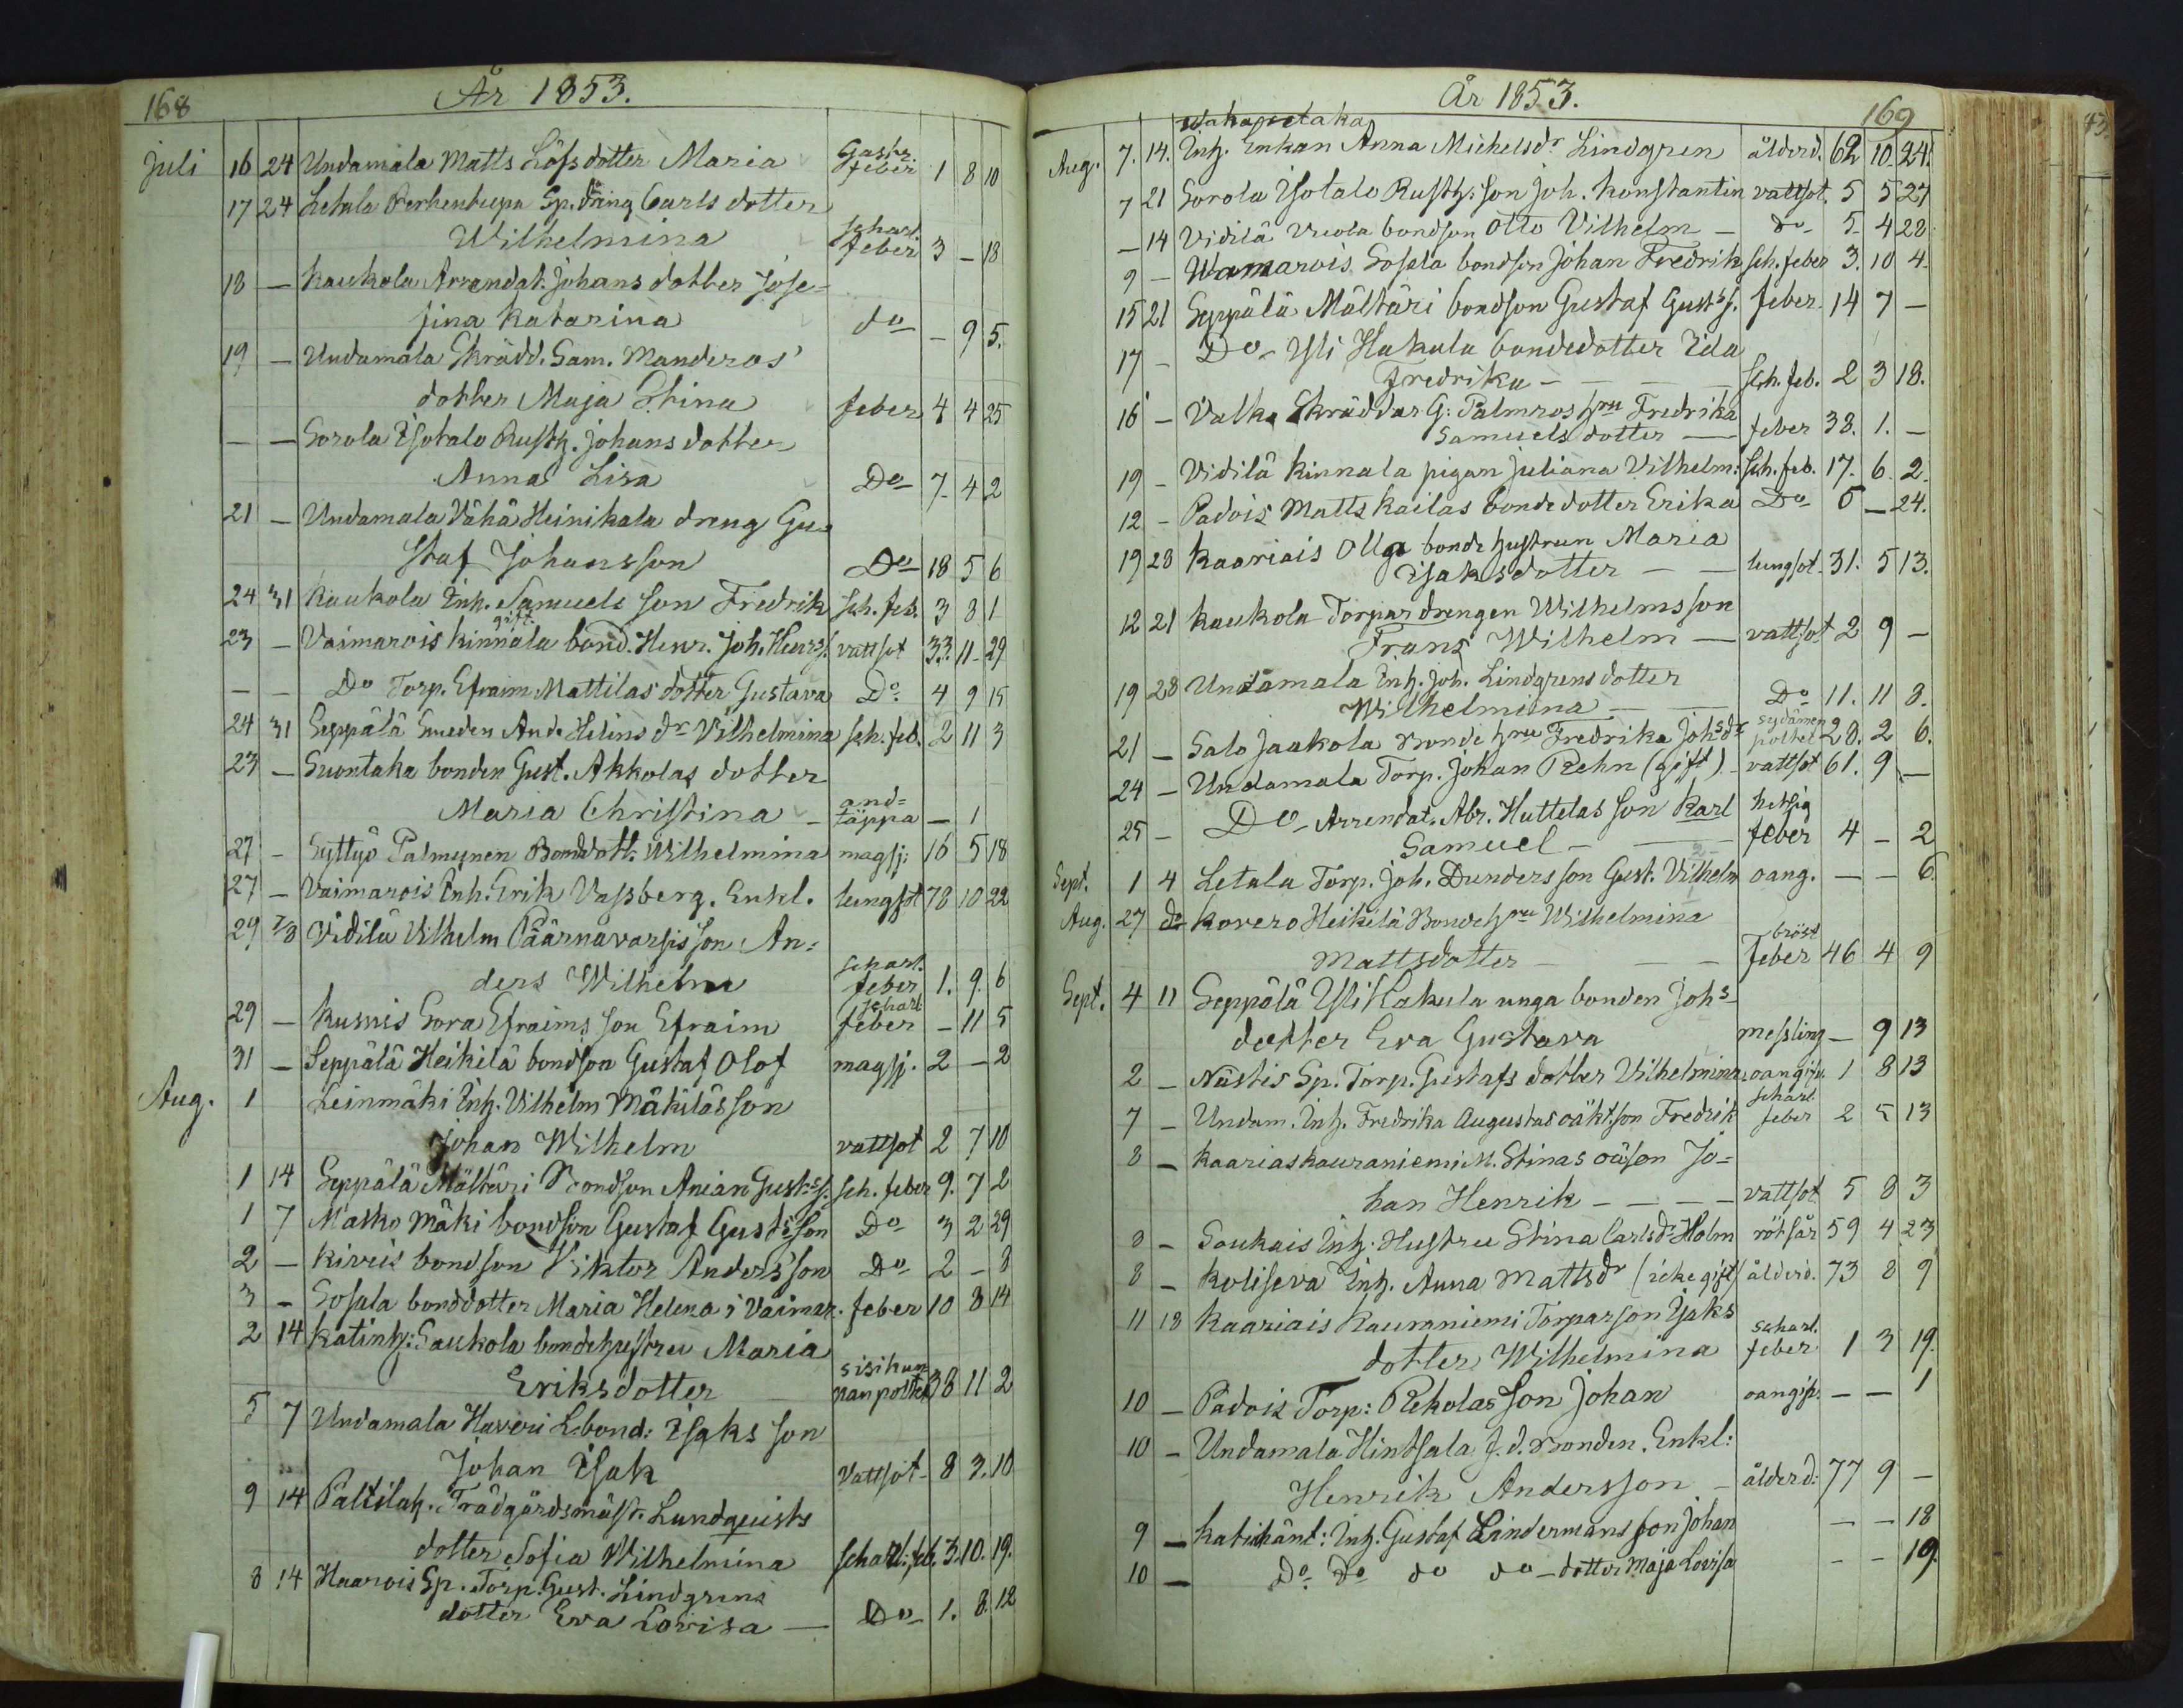 168
År 1853.
Juli 16 24 Undamala Matts Löfs dotter Maria Gastr. feber 1 8 10
17 24 Letala Perhentupa Sp. dräng Carls dotter
Wilhelmina scharl. feber 3 – 18
18 – Kaukola Arrendat. Johans dotter Jose=
fina Katarina do – 9 5.
19 – Undamala Skrädd. Sam. Manderos'
dotter Maja Stina feber 4 4 25
– – Sorola Isotalo Rusth. Johans dotter
Anna Lisa Do 7 4 2
21 – Undamala Vähä Heinikala dreng Gu=
staf Johansson Do 18 5 6
24 31 Kaukola Inh. Samuels son Fredrik sch. feb. 3 8 1
23 – Vaimarois Kinnala gift bond. Henr. Joh. Henrs. vattsot 33. 11 29
– – Do Torp. Efraim Mattilas dotter Gustava Do 4 9 15
24 31 Seppälä Smeden And. Helins dr Vilhelmina sch. feb. 2 11 3
23 – Suontaka bonden Gust. Akkolas dotter
Maria Christina – and=täppa – 1
27 – Syttyö Palmunen Bonddott. Wilhelmina magsj: 16 5 18
27 – Vaimarois Inh. Erik Vassberg. Enkl. lungsot 78 10 22
29 7/8 Vidilä Vilhelm Päärnävarsis son An=
ders Wilhelm scharl. feber 1. 9. 6
29 – Kusnis Sora Efraims son Efraim scharl feber – 11 5
31 – Seppälä Heikilä bondson Gustaf Olof magsj. 2 – 2
Aug. 1 Leinmäki Inh. Vilhelm Mäkiläs son
Johan Wilhelm vattsot 2 7 10
1 14 Seppälä Mältäri Bondson Anian Gusts s. sch. feber 9. 7 2
1 7 Masko Mäki bondson Gustaf Gusts son Do 3 2 29
2 – Kivris bondson Viktor Anders'son Do 2 – 8
3 – Sosala bonddotter Maria Helena i Vaimar. feber 10 8 14
2 14 Katinh: Saukola bondehustru Maria
Eriksdotter sisikun=nanpoltet 38 11 2
5 7 Undamala Haveri L. bond: Isaks son
Johan Isak Vattsot 8 3. 10
9 14 Paltilah. Trädgårdsmäst. Lundquists
dotter Sofia Wilhelmina scharl: feb. 3. 10. 19.
8 14 Haarois Sp. Torp. Gust. Lindgrens
dotter Eva Lovisa – Do 1. 8. 12
År 1853.
169
Aug. 7. 14. Inh. Enkan Anna Michelsdr Lindgren ålderd. 62 10 24.
7 21 Sorola Isotalo Rusth. son Joh. Konstantin vattsot. 5 5 27
– 14 Vidilä Ucola bondson Otto Vilhelm – Do 5 4 28.
9 – Wamarois Sosala bondson Johan Fredrik sch. feber 3. 10 4.
15 21 Seppälä Mältäri bondson Gustaf Gusts s. feber 14 7 –
17 – Do Yli Hakula bondedotter Ida
Fredrika – sch. feb. 2 3 18.
16 – Valko Skräddar G. Palmros hru Fredrika
Samuels dotter – feber 38. 1. –
19 – Vidilä Kinnala pigan Juliana Vilhelm: sch. feb. 17. 6. 2.
12 – Padois Matts Kailas bondedotter Erika Do 5 – 24.
19 28 Kaariais Olla bonde hustrun Maria
Isaksdotter – – lungsot 31. 5 13.
12 21 Kaukola Torpar drengen Wilhelms son
Frans Wilhelm – vattsot 2 9 –
19 28 Undamala Inh. Joh. Lindgrens dotter
Wilhelmina – Do 11. 11 8.
21 – Salo Jaakola Bonde hru Fredrika Johsdr sydämen poltet 28. 2 6.
24 – Undamala Torp. Johan Rehn (gift) – vattsot 61. 9 –
25 – Do Arrendat. Abr. Huttelas son Karl
Samuel – hetsig feber 4 – 2
Sept. 1 4 Letala Torp. Joh. Dunders son Gust. Vilhelm oang. – – 6.
Aug. 27 do Kovero Heikilä Bonde hru Wilhelmina
Mattsdotter – – bröst feber 46 4 9
Sept. 4 11 Seppälä Yli Hakula unga bonden Johs
dotter Eva Gustava messling – 9 13
2 – Nästis Sp. Torp. Gustafs dotter Vilhelmina oangif. 1 8 13
7 – Undam. Inh. Fredrika Augustas oäkt. son Fredrik scharl. feber 2 5 13
8 – Kaarias kauraniemi M. Stinas oä son Jo=
han Henrik – – – – vattsot 5 8 3
8 – Saukais Inh. Hustru Stina Carlsdr Holm rötsår 59 4 23
8 – Koliseva Inh. Anna Mattsdr (icke gift) ålderd. 73 8 9
11 18 Kaariais Kauraniemi Torparson Isaks
dotter Wilhelmina scharl. feber 1 3 19.
10 – Padois Torp: Rekolas son Johan oangif. – – 1
10 – Undamala Hintsala f. d. Bonden. Enkl:
Henrik Andersson – ålderd: 77 9 –
9 – Katihänt: Inh. Gustaf Lindermans son Johan – – 18
10 – Do Do do do – dotter Maja Lovisa – – 19.